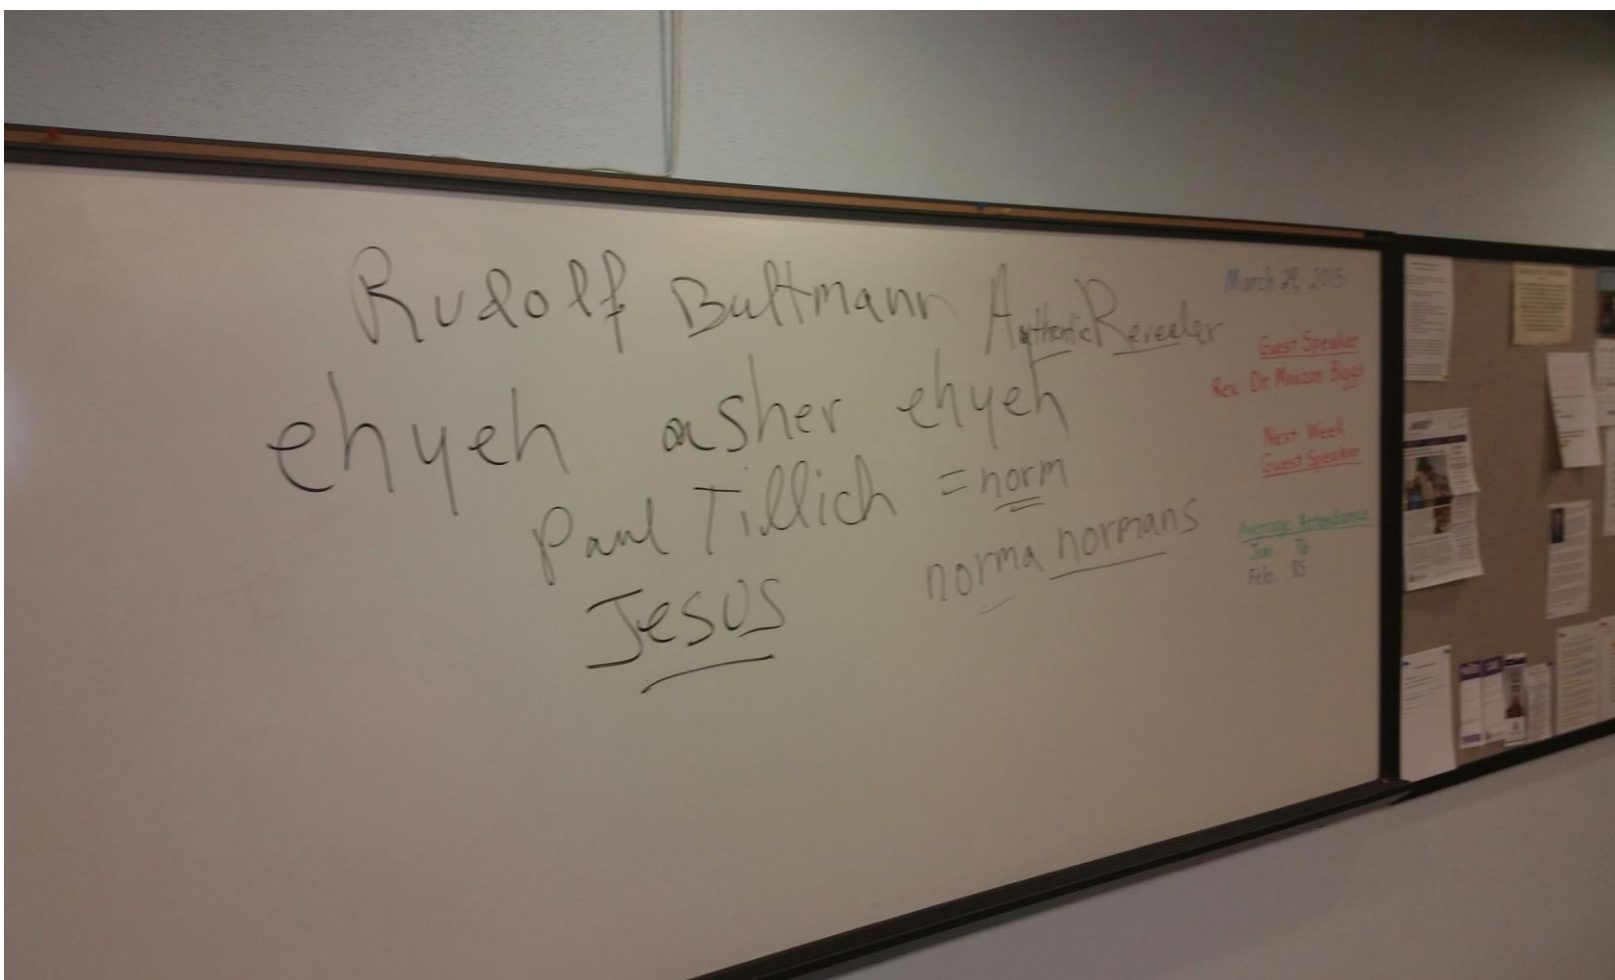 Rudolf Bultmann Authentic Revealer
ehyeh asher ehyeh
Paul Tillich = norm
norma normans
Jesus
March 29, 2015
Guest Speaker
Rev. Dr. Mouzon Biggs
Next Week
Guest Speaker
Average Attendance
Jan 76
Feb. 85